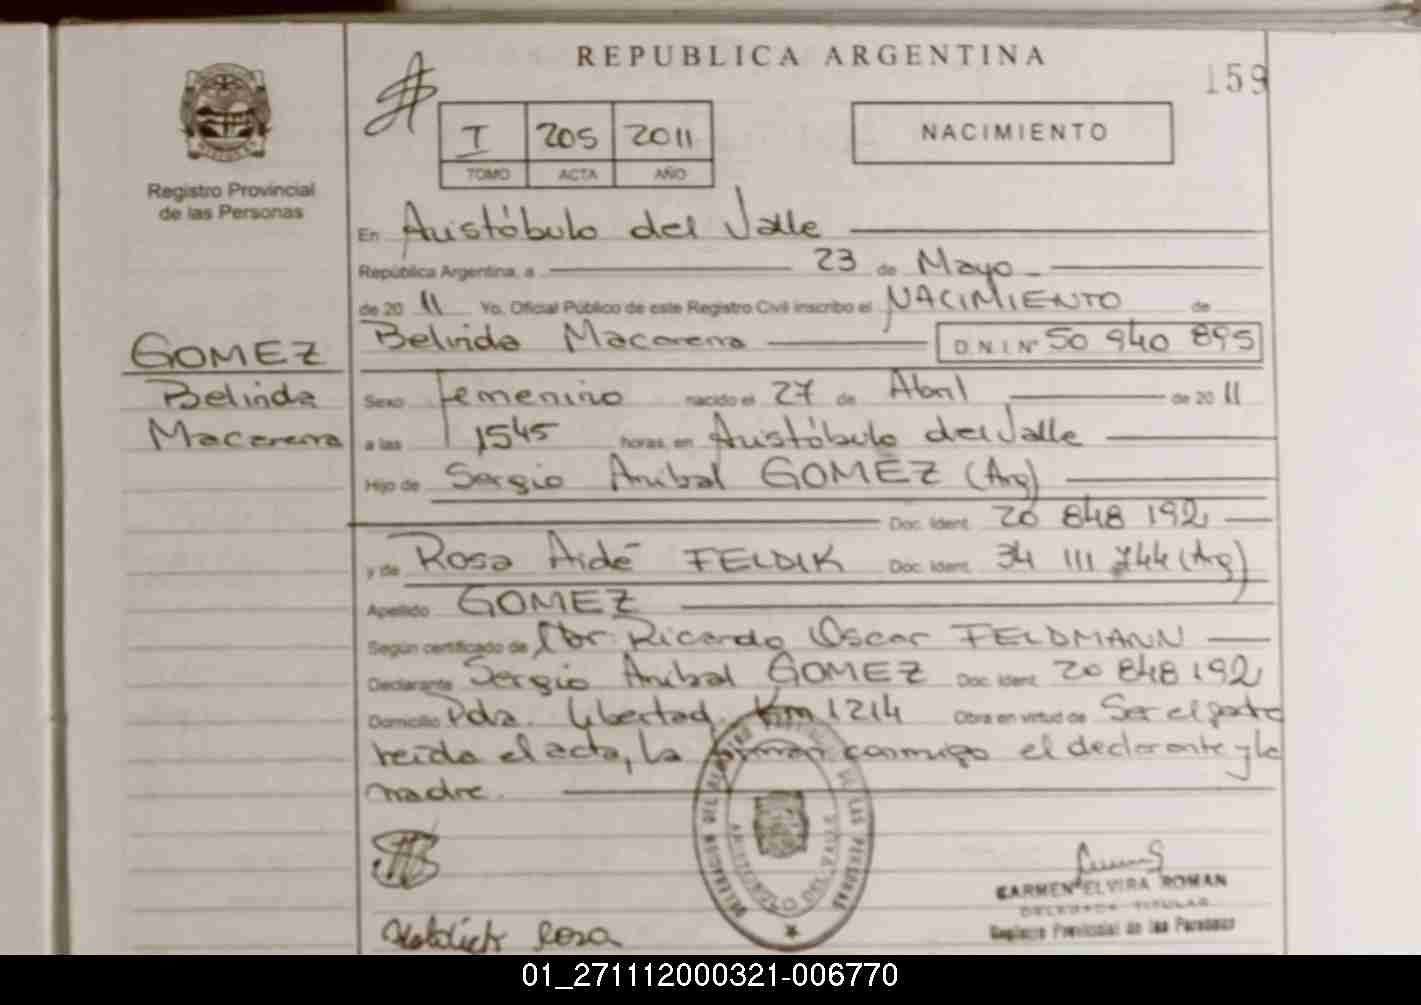 REPUBLICA ARGENTINA
159
I 205 2011
TOMO ACTA AÑO
NACIMIENTO
Registro Provincial
de las Personas
En Aristóbulo del Valle
República Argentina, a 23 de Mayo
de 2011 Yo, Oficial Público de este Registro Civil inscribo el NACIMIENTO de
Belinda Macarena D.N.I. Nº 50 940 895
GOMEZ
Belinda
Macarena
Sexo femenino nacido el 27 de Abril de 2011
a las 1545 horas, en Aristóbulo del Valle
Hijo de Sergio Anibal GOMEZ (Arg)
Doc. Ident. 20 848 192
y de Rosa Aidé FELDIK Doc. Ident. 34 111 744 (Arg)
Apellido GOMEZ
Según certificado de Obr. Ricardo Oscar FELDMANN
Declarante Sergio Anibal GOMEZ Doc. Ident. 20 848 192
Domicilio Pda. Libertad Km 1214 Obra en virtud de Ser el padre
leida el acta, la firman conmigo el declarante y la
madre.
DELEGACION DEL REGISTRO PROVINCIAL DE LAS PERSONAS
ARISTOBULO DEL VALLE
CARMEN ELVIRA ROMAN
DELEGADA TITULAR
Registro Provincial de las Personas
Rosa
01_271112000321-006770